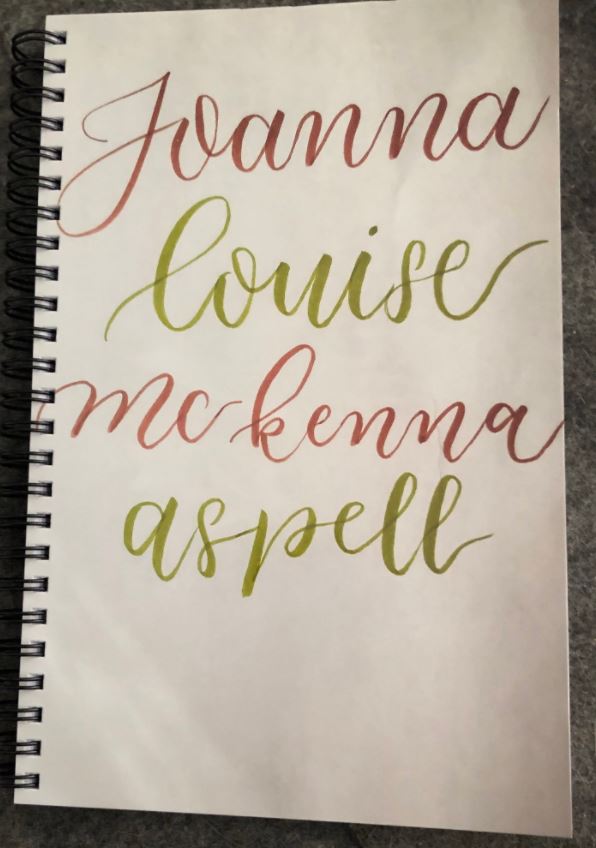 Joanna
louise
mckenna
aspell